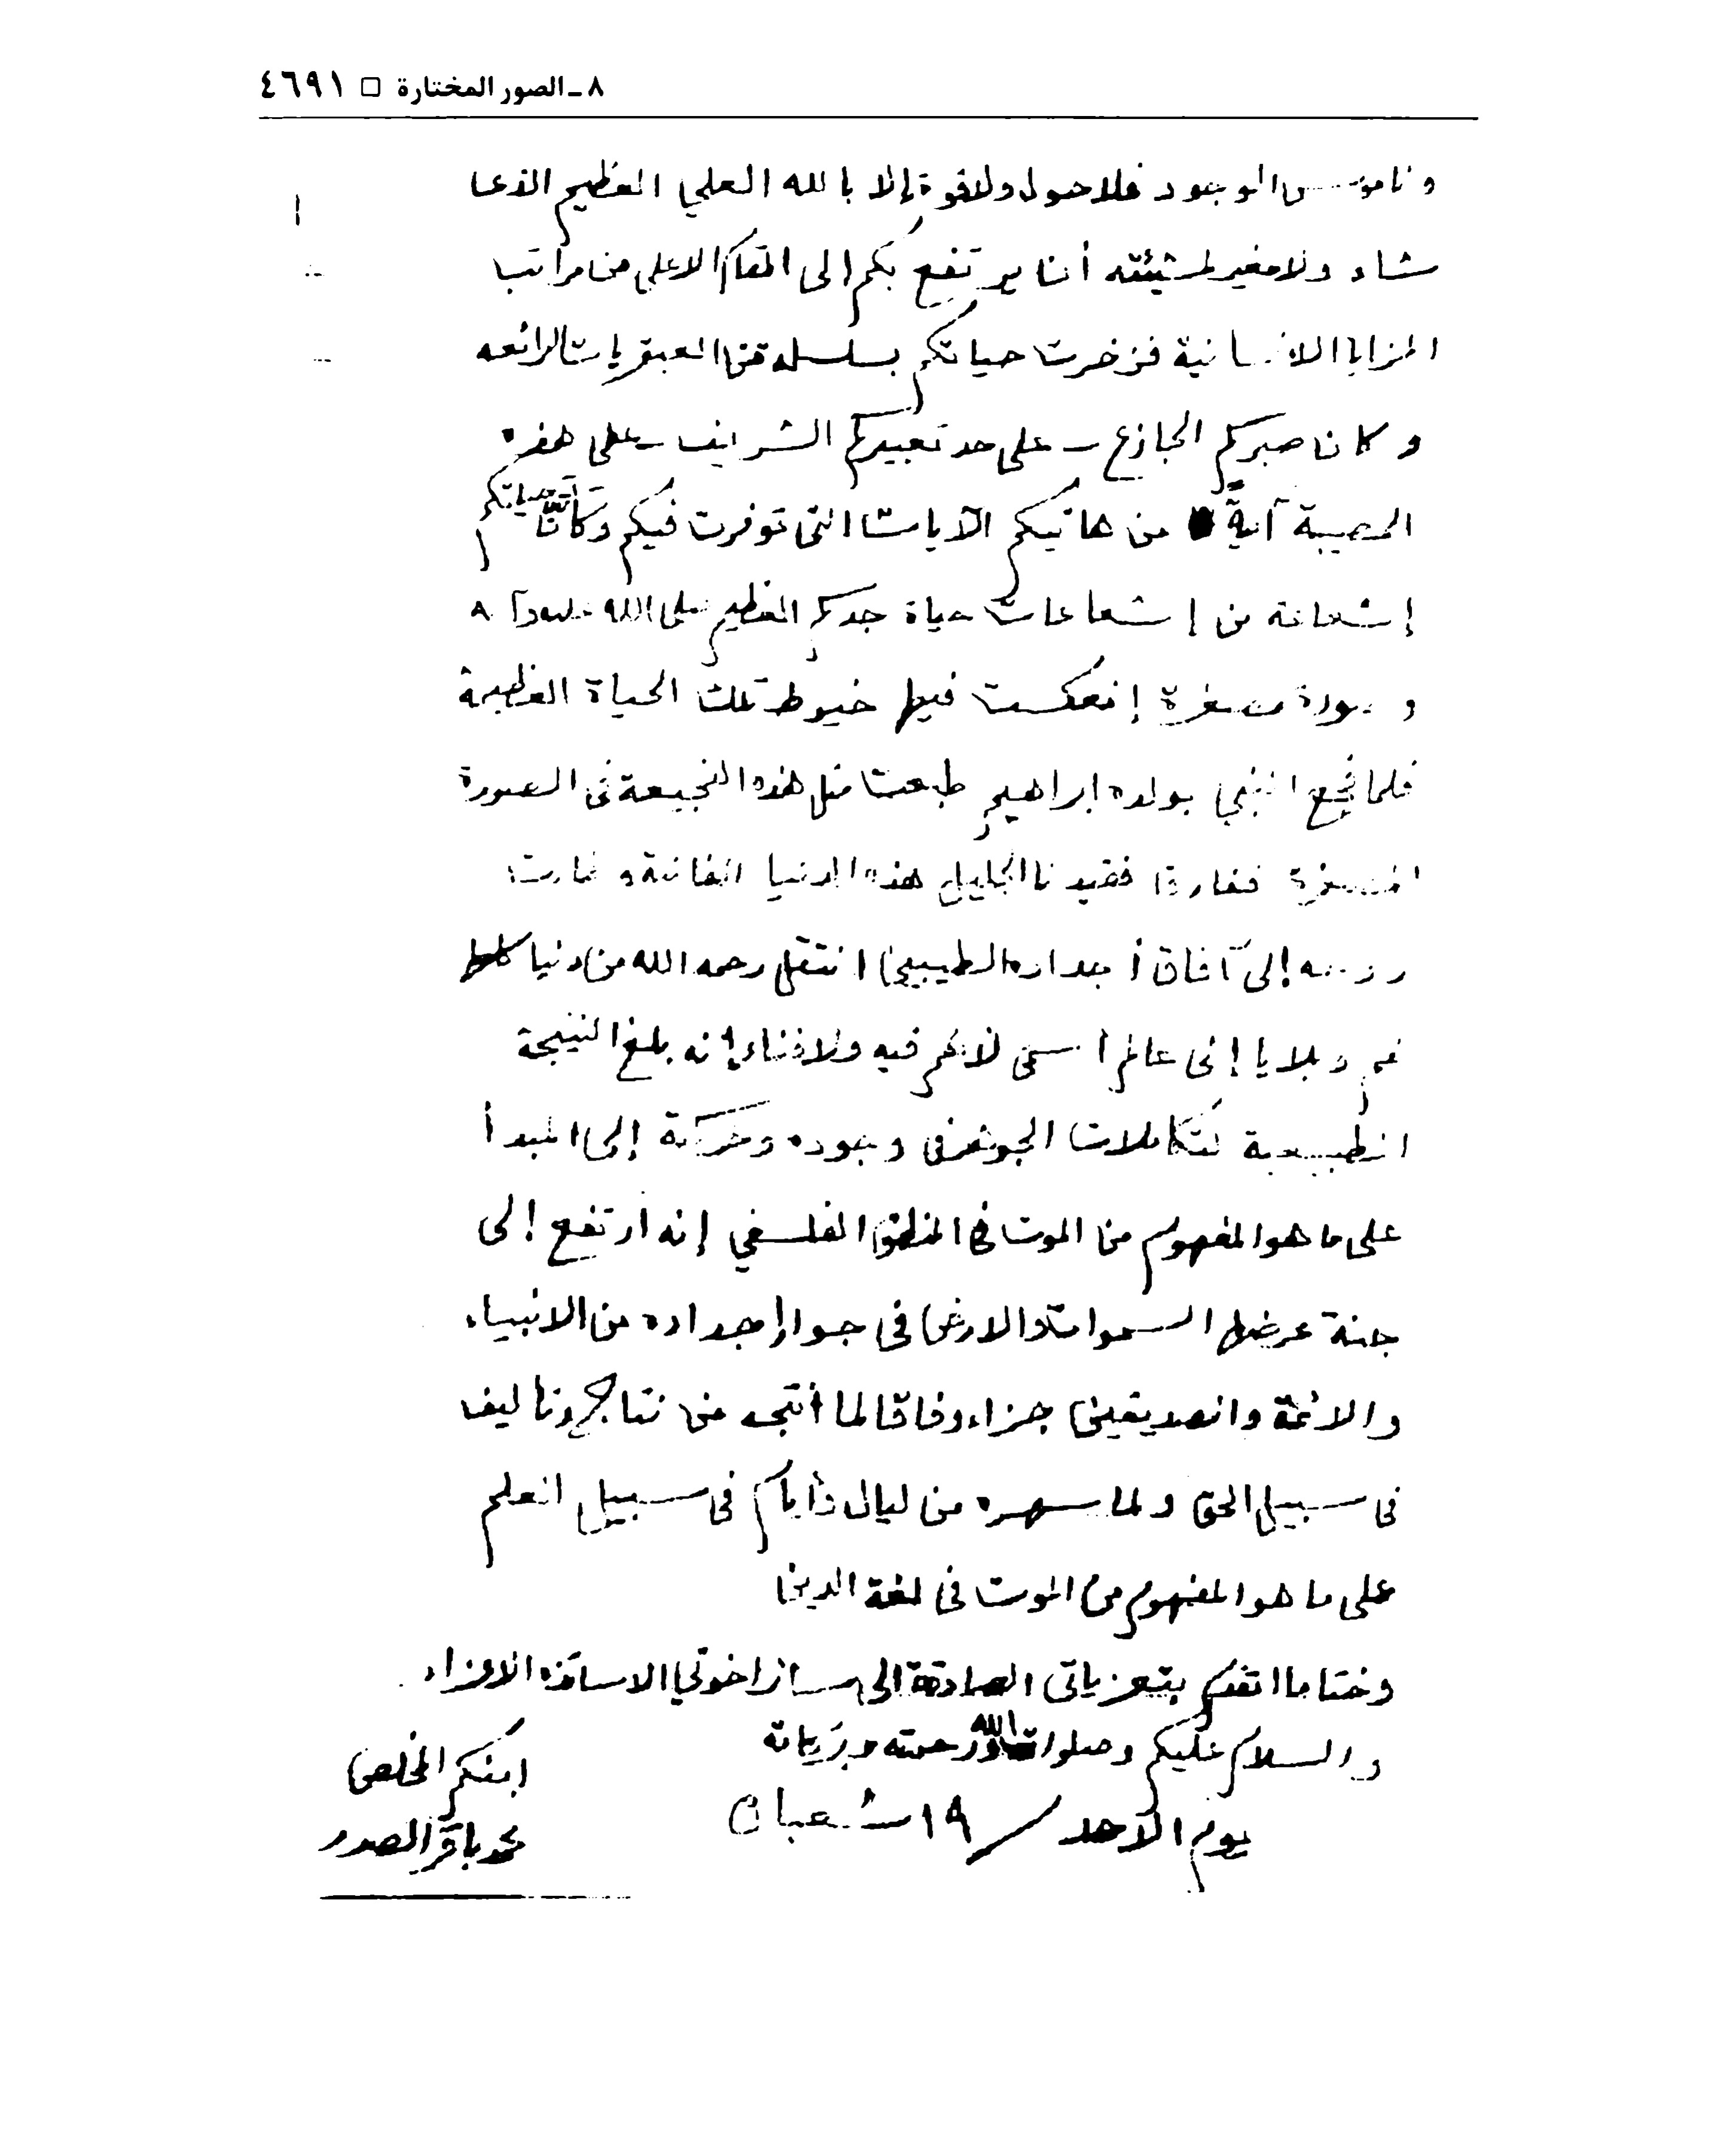 ٨ ـ الصور المختارة □ ٤٦٩١
وناموس الوجود فلا حول ولا قوة إلا بالله العلي العظيم الذي
شاء ولا مغير لمشيئته أن يرتفع بكم إلى المقام الاعلى من مراتب
المزايا الانسانية فزخرت حياتكم بسلسلة من العبقريات الرائعه
وكان صبركم الجازع ـ على حد تعبيركم الشريف ـ على هذه
المصيبة آيةً من هاتيكم الآيات التي توفرت فيكم وكأنّ حياتكم
إشعاعة من إشعاعات حياة جدكم العظيم صلى الله عليه وآله
وصورة مصغرة إنعكست فيها خيوط تلك الحياة العظيمة
فلما فجع النبي بولده ابراهيم طبعت مثل هذه الفجيعة في الصورة
المصغرة ففارق فقيدنا الجليل هذه الدنيا الفانية و
روحه إلى آفاق أجداده الطيبين انتقل رحمه الله من دنيا كلها
غم وبلايا إلى عالم أسمى لا غم فيه ولا فناء إنه بلغ النتيجة
الطبيعية لتكاملات الجوهر في وجوده وحركة إلى المبدأ
على ما هو المفهوم من الموت في المنطق الفلسفي إنه ارتفع إلى
جنة عرضها السموات والارض في جوار إجداده من الانبياء
والائمة والصديقين جزاء وفاقا لما أنتجه من نتاج وتاليف
في سبيل الحق ولما سهره من ليال وأيام في سبيل العلم
على ما هو المفهوم من الموت في لغة الدين
وختاما اتقدم بتعزياتي الصادقة الى سائر اخوتي الاساتذه الاعزاء
والسلام عليكم وصلوات الله ورحمته وبركاته
يوم الاحد / ١٩ شعبان
ابنكم المخلص
محمد باقر الصدر